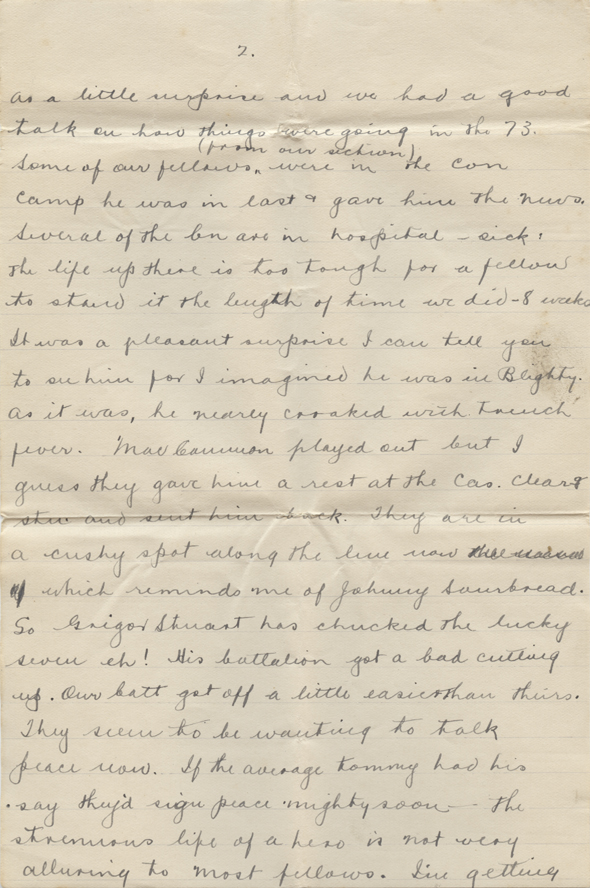 2.
as a little surprise and we had a good
talk on how things were going in the 73.
(from our section)
Some of our fellows, were in the con
camp he was in last & gave him the news.
Several of the bn are in hospital – sick:
the life up there is too tough for a fellow
to stand it the length of time we did – 8 weeks
It was a pleasant surprise I can tell you
to see him for I imagined he was in Blighty.
As it was, he nearly croaked with trench
fever. MacCammon played out but I
guess they gave him a rest at the Cas. Clear'g
stn and sent him back. They are in
a cushy spot along the line now
which reminds me of Johnny Sourbread.
So Grigor Stuart has chucked the lucky
seven eh! His battalion got a bad cutting
up. Our batt got off a little easier than theirs.
They seem to be wanting to talk
peace now. If the average tommy had his
say they'd sign peace mighty soon – the
strenuous life of a hero is not very
alluring to most fellows. I'm getting